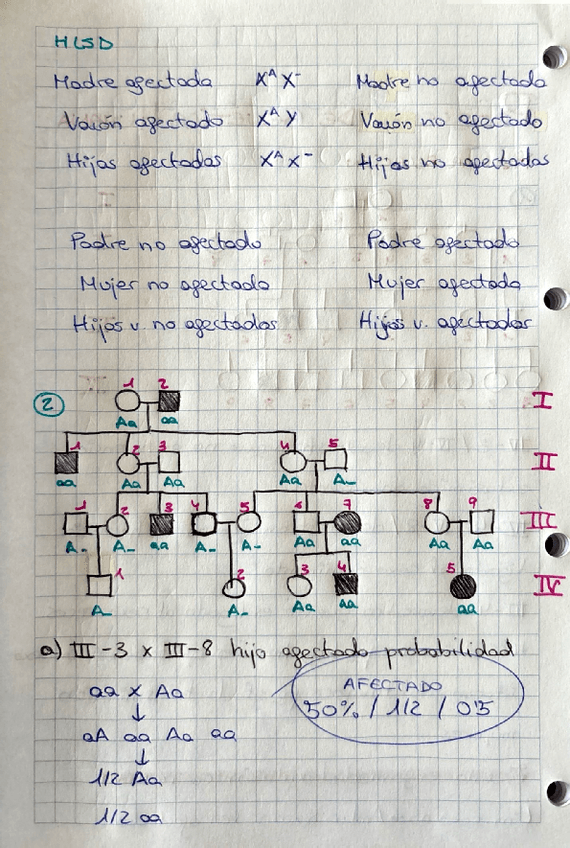 HLSD
Madre afectada X^A X^- Madre no afectada
Varón afectado X^A Y Varón no afectado
Hijas afectadas X^A X^- Hijas no afectadas
Padre no afectado Padre afectado
Mujer no afectada Mujer afectada
Hijos v. no afectados Hijos v. afectados
2 1 2 I
Aa aa
1 2 3 4 5 II
aa Aa Aa Aa A_
1 2 3 4 5 6 7 8 9 III
A- A- aa A- A- Aa aa Aa Aa
1 2 3 4 5 IV
A_ A- Aa aa aa
a) III-3 x III-8 hijo afectado probabilidad
aa x Aa AFECTADO
50% / 1/2 / 0'5
aA aa Aa aa
1/2 Aa
1/2 aa